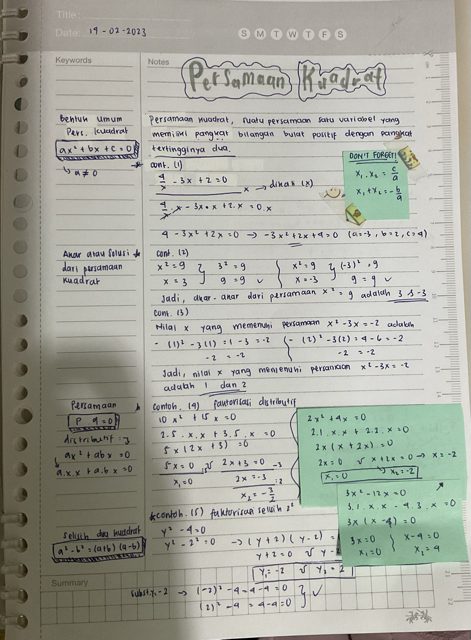 Title :
Date: 19-02-2023
S M T W T F S
Keywords
Notes
Persamaan Kuadrat
Bentuk Umum
Pers. kuadrat
ax² + bx + c = 0
↳ a ≠ 0
Persamaan kuadrat, suatu persamaan satu variabel yang
memiliki pangkat bilangan bulat positif dengan pangkat
tertingginya dua.
DON'T FORGET!
x₁ . x₂ = c/a
x₁ + x₂ = -b/a
cont. (1)
4/x - 3x + 2 = 0
x → dikali (x)
4/x . x - 3x . x + 2 . x = 0 . x
4 - 3x² + 2x = 0 → -3x² + 2x + 4 = 0 (a=-3, b=2, c=4)
Akar atau solusi
dari persamaan
kuadrat
cont. (2)
x² = 9 } 3² = 9 { x² = 9 } (-3)² = 9
x = 3 9 = 9 ✓ x = -3 9 = 9 ✓
Jadi, akar-akar dari persamaan x² = 9 adalah 3 & -3
cont. (3)
Nilai x yang memenuhi persamaan x² - 3x = -2 adalah
- (1)² - 3(1) = 1 - 3 = -2 - (2)² - 3(2) = 4 - 6 = -2
-2 = -2 -2 = -2
Jadi, nilai x yang memenuhi persamaan x² - 3x = -2
adalah 1 dan 2
Persamaan
distributif :
ax² + abx = 0
a.x.x + a.b.x = 0
contoh. (4) faktorisasi distributif
10x² + 15x = 0
2.5.x.x + 3.5.x = 0
5x (2x + 3) = 0
5x = 0 v 2x + 3 = 0
x₁ = 0 2x = -3
x₂ = -3/2
2x² + 4x = 0
2.1.x.x + 2.2.x = 0
2x (x + 2x) = 0
2x = 0 v x + 2x = 0 → x = -2
x₁ = 0 x₂ = -2
3x² - 12x = 0
3.1.x.x - 4.3.x = 0
3x (x - 4) = 0
3x = 0 x - 4 = 0
x₁ = 0 x₂ = 4
selisih dua kuadrat
a² - b² = (a+b) (a-b)
contoh. (5) faktorisasi selisih 2²
y² - 4 = 0
y² - 2² = 0 → (y + 2) (y - 2) =
y + 2 = 0 v y -
y₁ = -2 v y₂ = 2
Summary
subst. y = -2 → (-2)² - 4 = 4 - 4 = 0 } ✓
(2)² - 4 = 4 - 4 = 0